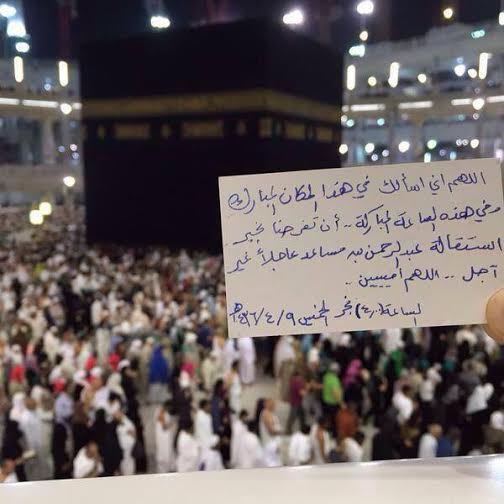 اللهم اني اسألك في هذا المكان المبارك
وفي هذه الساعة المباركة .. أن تفرحنا بخبر
استقالة عبدالرحمن بن مساعد عاجلاً غير
آجل .. اللهم آمييين ..
الساعة فجر الخميس ١٤٣٦/٤/٩هـ